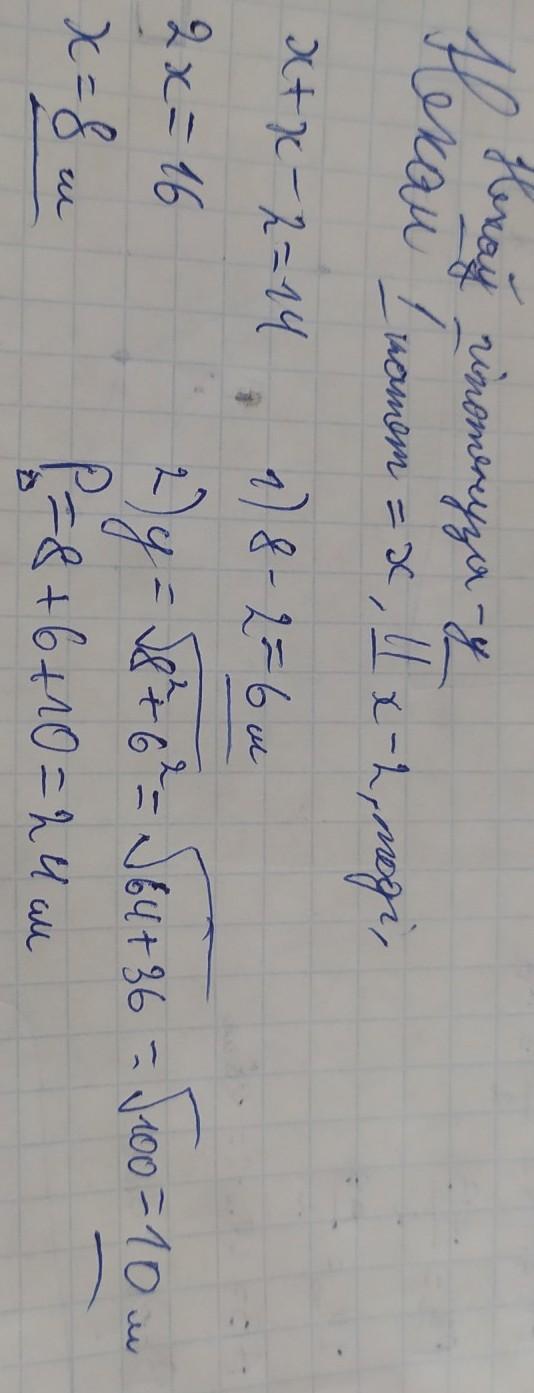 Нехай гіпотенуза - y
Нехай I катет = x, II x - 2, тоді,
x + x - 2 = 14
2x = 16
x = 8 м
1) 8 - 2 = 6 м
2) y = √8² + 6² = √64 + 36 = √100 = 10 м
P = 8 + 6 + 10 = 24 см